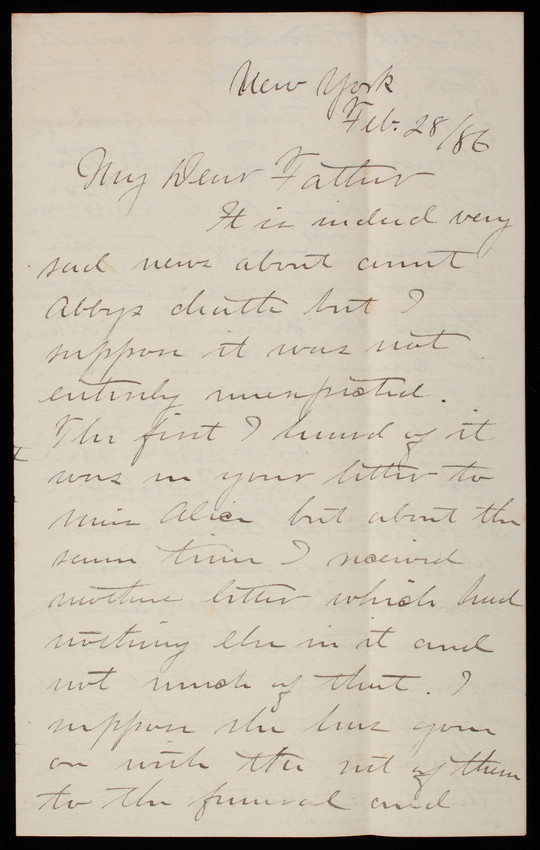 New York
Feb. 28/86
My Dear Father
It is indeed very
sad news about aunt
Abbys death but I
suppose it was not
entirely unexpected.
The first I heard of it
was in your letter to
Miss Alice but about the
same time I received
mothers letter which had
nothing else in it and
not much of that. I
suppose she has gone
on with the rest of them
to the funeral and